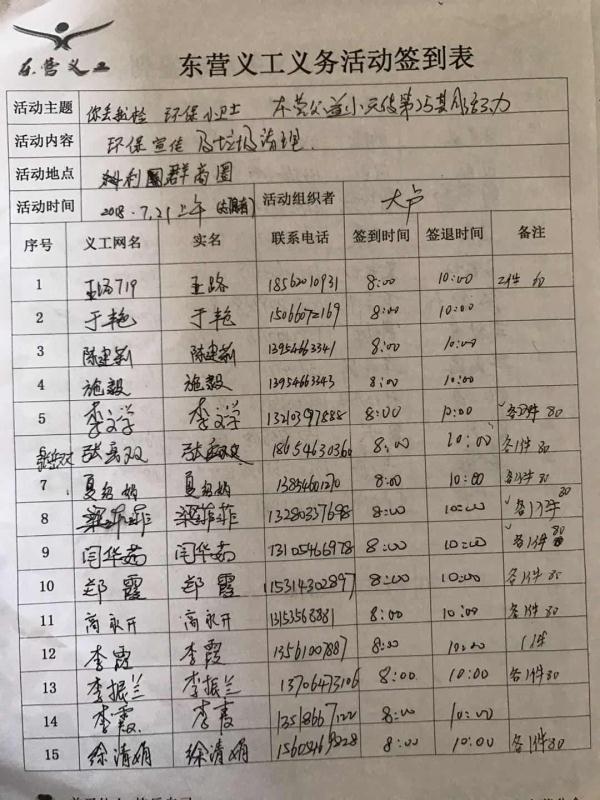 东营义工
东营义工义务活动签到表
活动主题 你丢我捡 环保小卫士 东营公益小天使第25其
活动内容 环保宣传 及垃圾清理
活动地点 利群商圈
活动时间 2018.7.21上午 活动组织者 大卢
序号 义工网名 实名 联系电话 签到时间 签退时间 备注
1 719 王路 18562010931 8:00 10:00 2件 80
2 于艳 于艳 15066072169 8:00 10:00
3 陈建新 陈建新 13954663341 8:00 10:00
4 施毅 施毅 13954663343 8:00 10:00
5 李文学 李文学 13210397888 8:00 10:00 80
张岳双 18654630360 8:00 10:00 各1件 80
7 13854601270 8:00 10:00 各1件 80
8 梁菲菲 梁菲菲 13280337698 8:00 10:00 各1件 80
9 闫华茹 闫华茹 13105466978 8:00 10:00 各1件 80
10 郑霞 郑霞 15314302897 8:00 10:00 各1件 80
11 商永开 商永开 8:00 10:00 各1件 80
12 李霞 李霞 13561007887 8:00 10:00 1件
13 李振兰 李振兰 13706473106 8:00 10:00 各1件 80
14 李霞 李霞 8:00 10:00
15 徐清娟 徐清娟 8:00 10:00 各1件 80